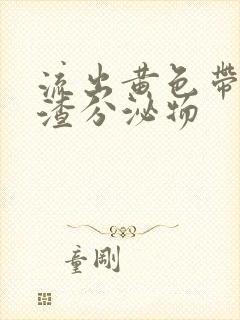 流出黄色带
渣分泌物
童剛